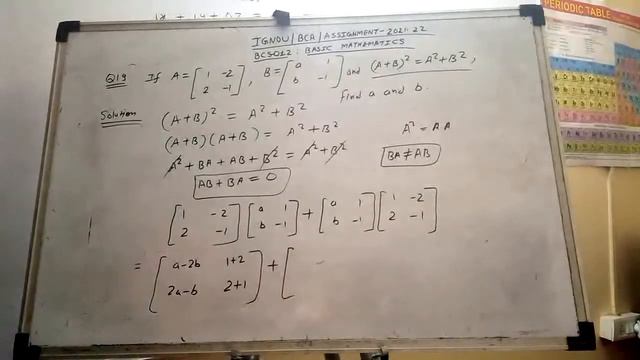 IGNOU/BCA/ASSIGNMENT-2021-22
BCS012: BASIC MATHEMATICS
PERIODIC TABLE
Q19 If A = [1 -2; 2 -1], B = [a 1; b -1] and (A+B)² = A² + B²,
find a and b.
Solution (A+B)² = A² + B²
(A+B)(A+B) = A² + B²
A² = AA
A² + BA + AB + B² = A² + B²
BA ≠ AB
AB + BA = 0
[1 -2; 2 -1] [a 1; b -1] + [a 1; b -1] [1 -2; 2 -1]
= [a-2b 1+2; 2a-b 2+1] + [